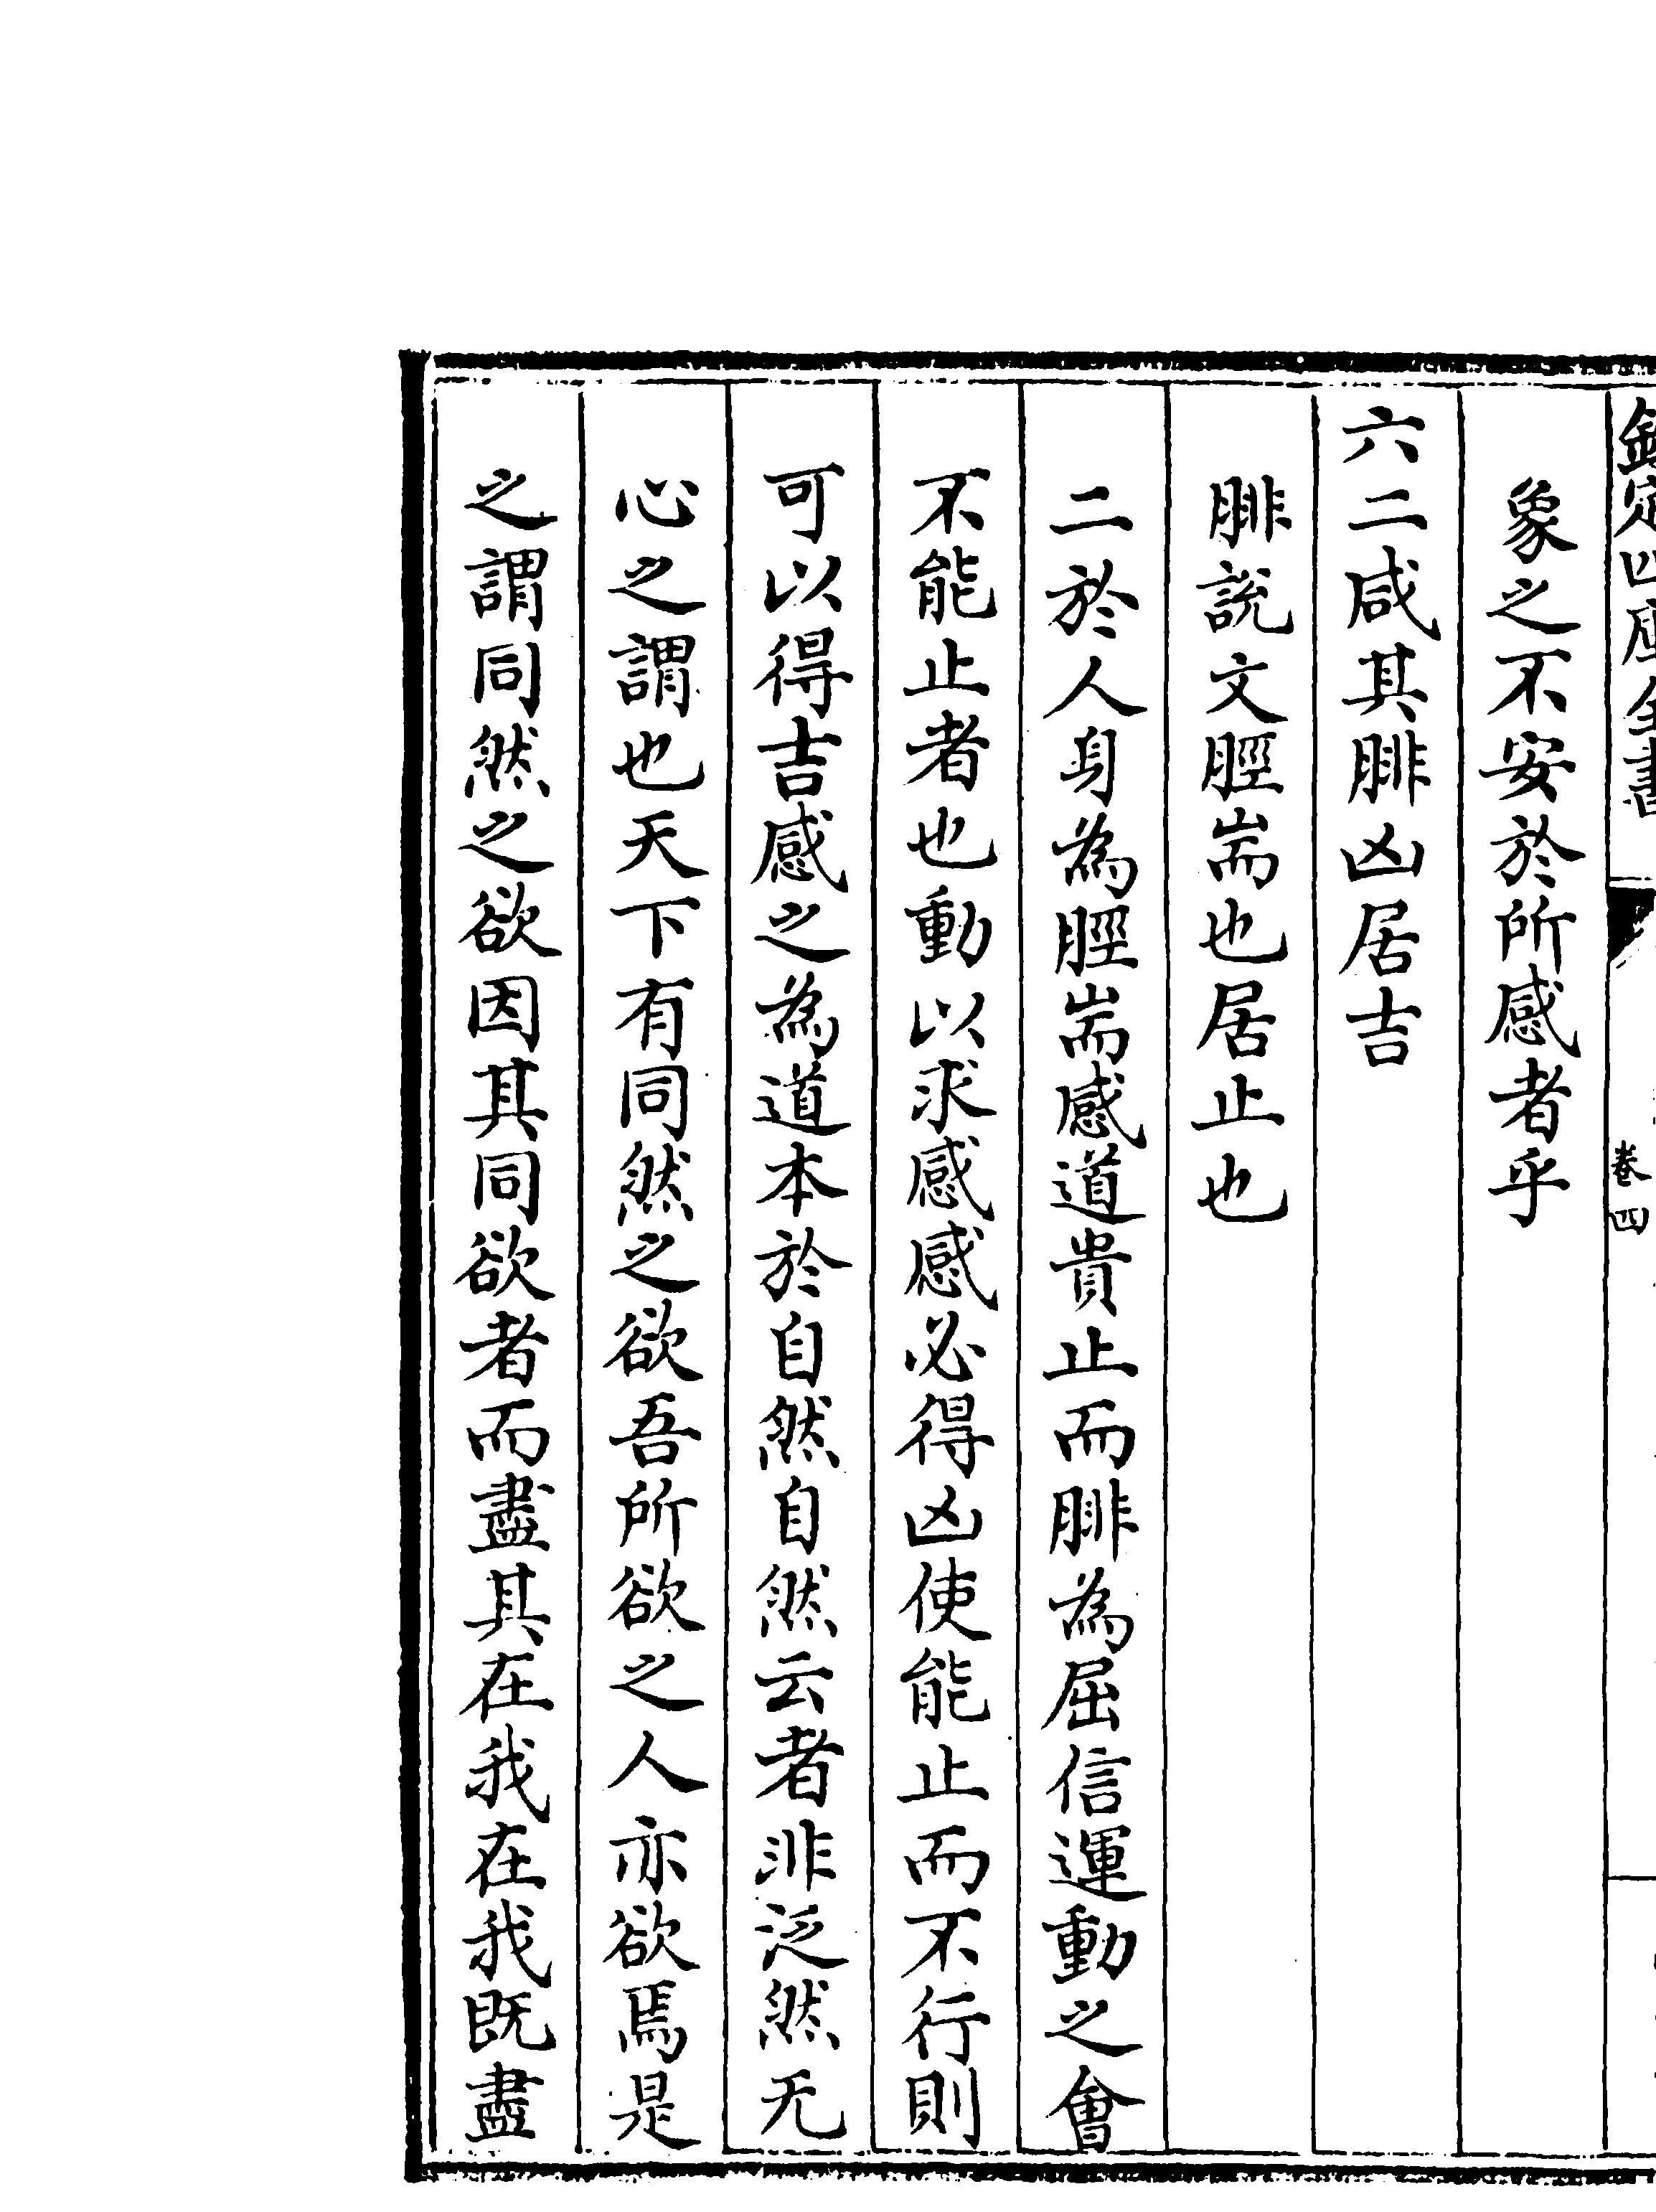 欽定四庫全書
卷四
象之不安於所感者乎
六二咸其腓凶居吉
腓說文脛耑也居止也
二於人身為脛耑感道貴止而腓為屈信運動之會
不能止者也動以求感感必得凶使能止而不行則
可以得吉感之為道本於自然自然云者非泛然无
心之謂也天下有同然之欲吾所欲之人亦欲焉是
之謂同然之欲因其同欲者而盡其在我在我既盡